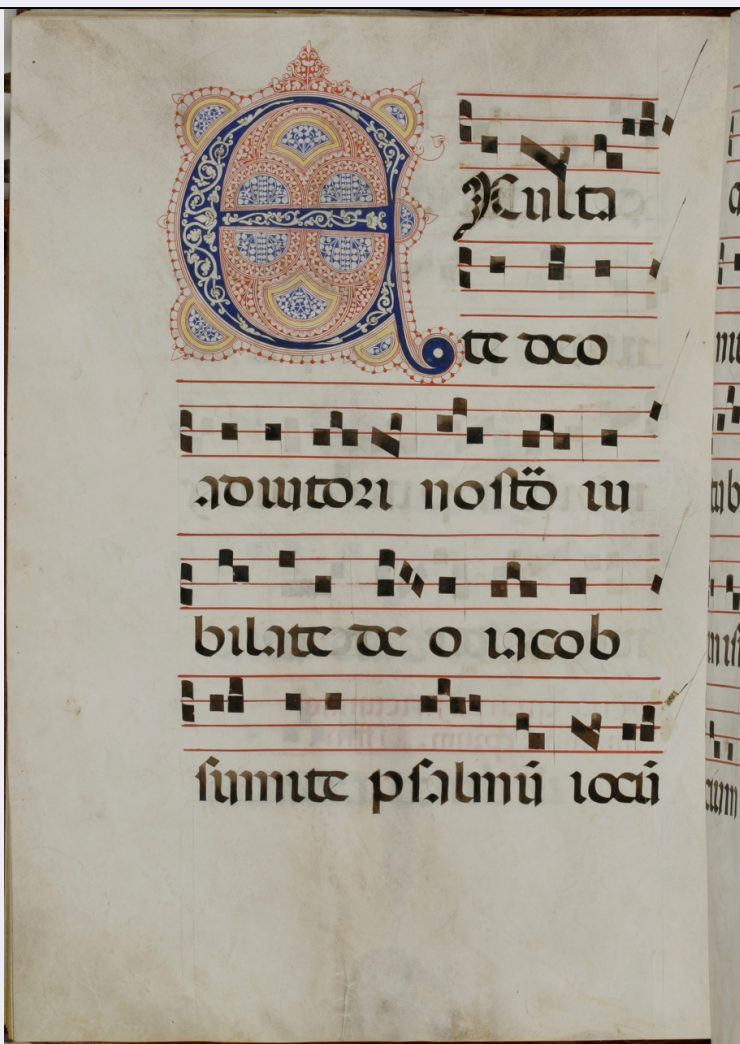 EXulta
te deo
adiutori nostrō iu
bilate de o iacob
sumite psalmū iocū